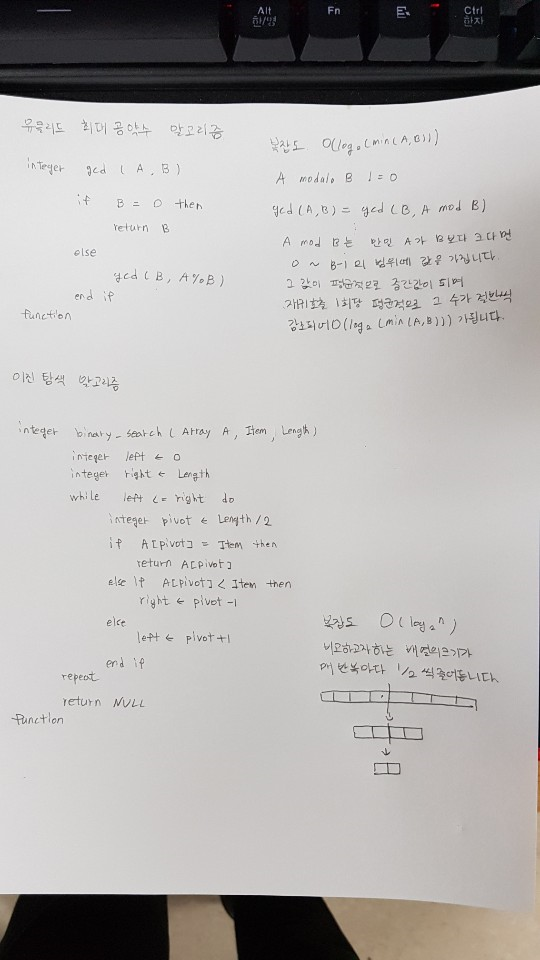 Alt
한/영
Fn
Ctrl
한자
유클리드 최대 공약수 알고리즘
integer gcd ( A, B )
if B = 0 then
return B
else
gcd ( B, A%B )
end if
function
복잡도 O(log₂(min(A,B)))
A modulo B != 0
gcd(A,B) = gcd (B, A mod B)
A mod B는 만일 A가 B보다 크다면
0 ~ B-1 의 범위에 값을 가집니다.
그 값이 평균적으로 중간값이 되며
재귀호출 1회당 평균적으로 그 수가 절반씩
감소되어 O(log₂(min(A,B))) 가 됩니다.
이진 탐색 알고리즘
integer binary_search ( Array A, Item, Length )
integer left ← 0
integer right ← Length
while left <= right do
integer pivot ← Length/2
if A[pivot] = Item then
return A[pivot]
else if A[pivot] < Item then
right ← pivot-1
else
left ← pivot+1
end if
repeat
return NULL
function
복잡도 O(log₂ⁿ)
비교하고자하는 배열의크기가
매 반복마다 1/2 씩 줄어듭니다.